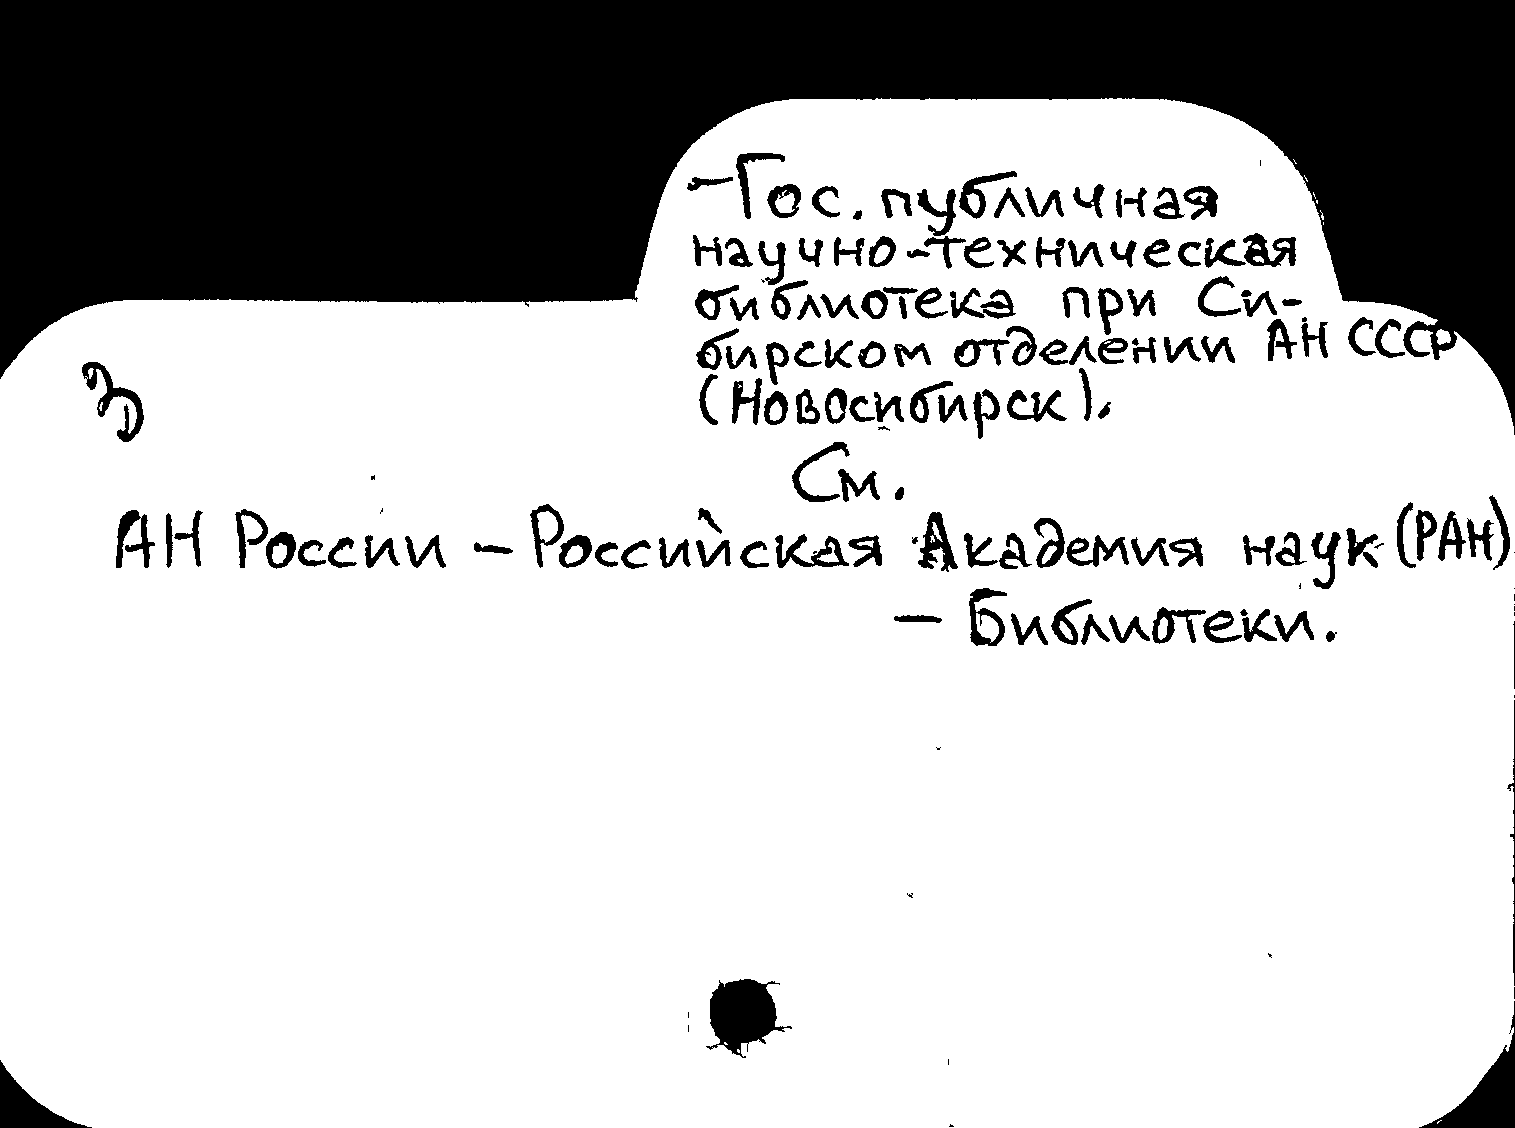 - Гос. публичная
научно-техническая
библиотека при Си-
бирском отделении АН СССР
(Новосибирск).
См.
АН России - Российская Академия наук (РАН)
- Библиотеки.